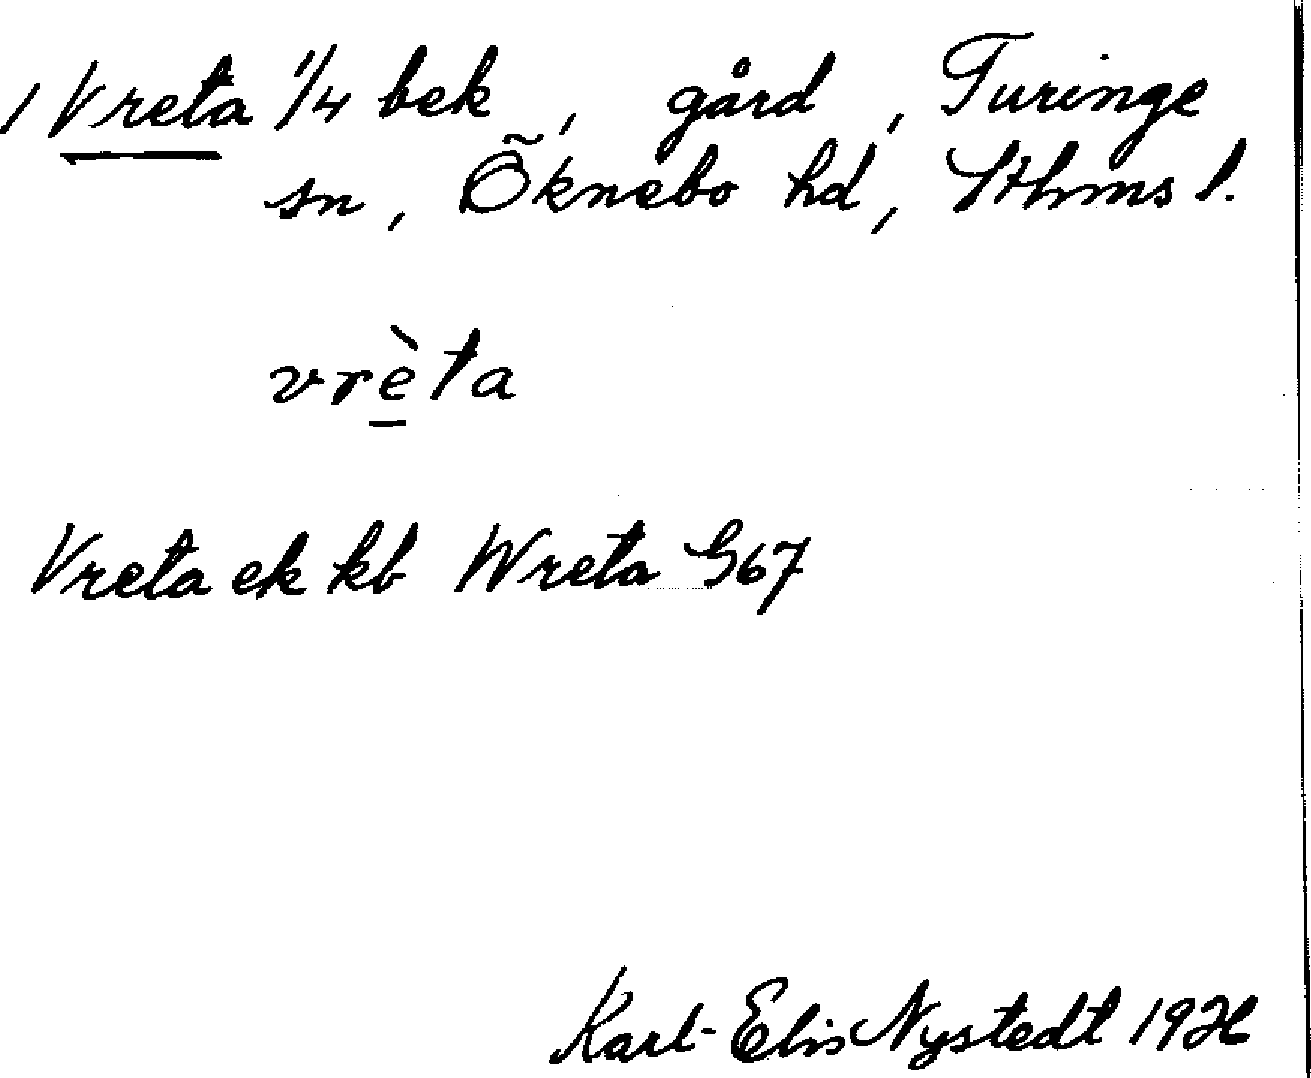 1 Vreta 1/4 bek, gård, Turinge
sn, Õknebo hd, Sthms l.
vrèta
Vreta ek kb Wreta G67
Karl-Elis Nystedt 1926